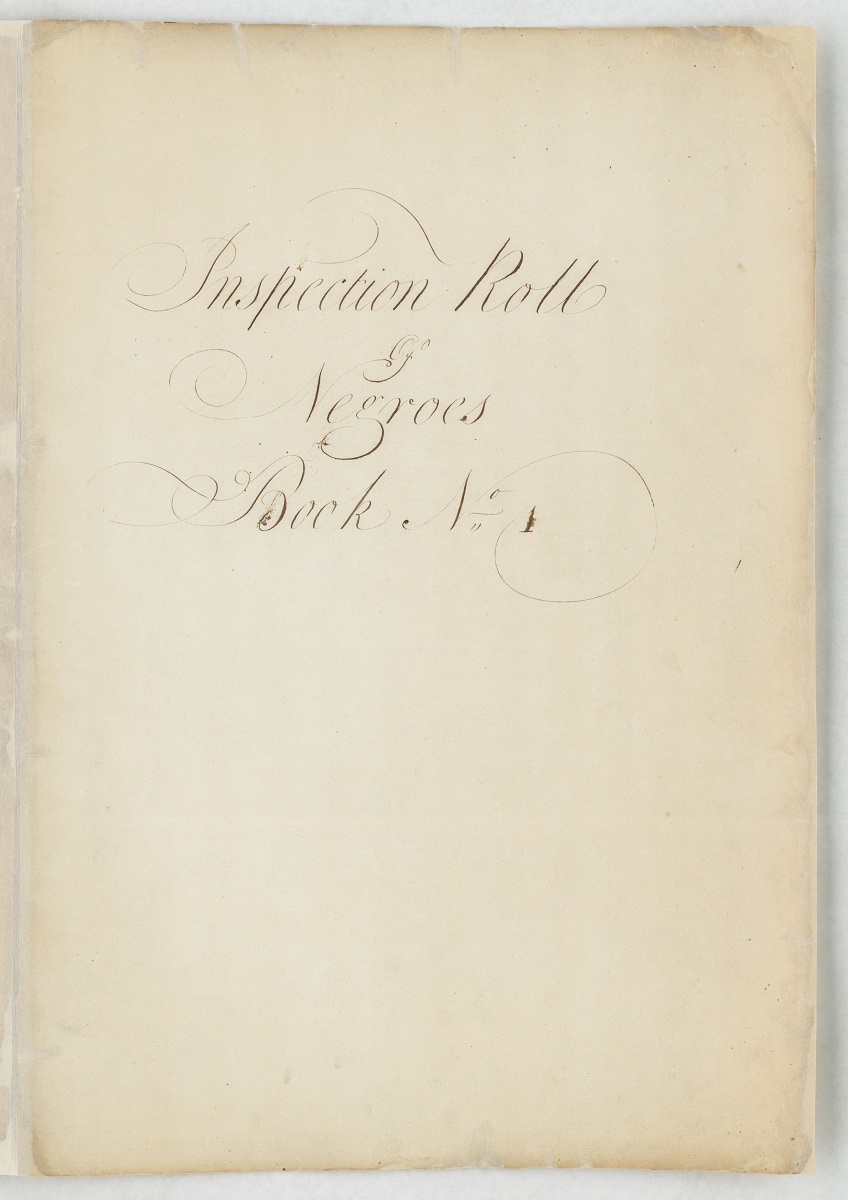 Inspection Roll
of
Negroes
Book No 1